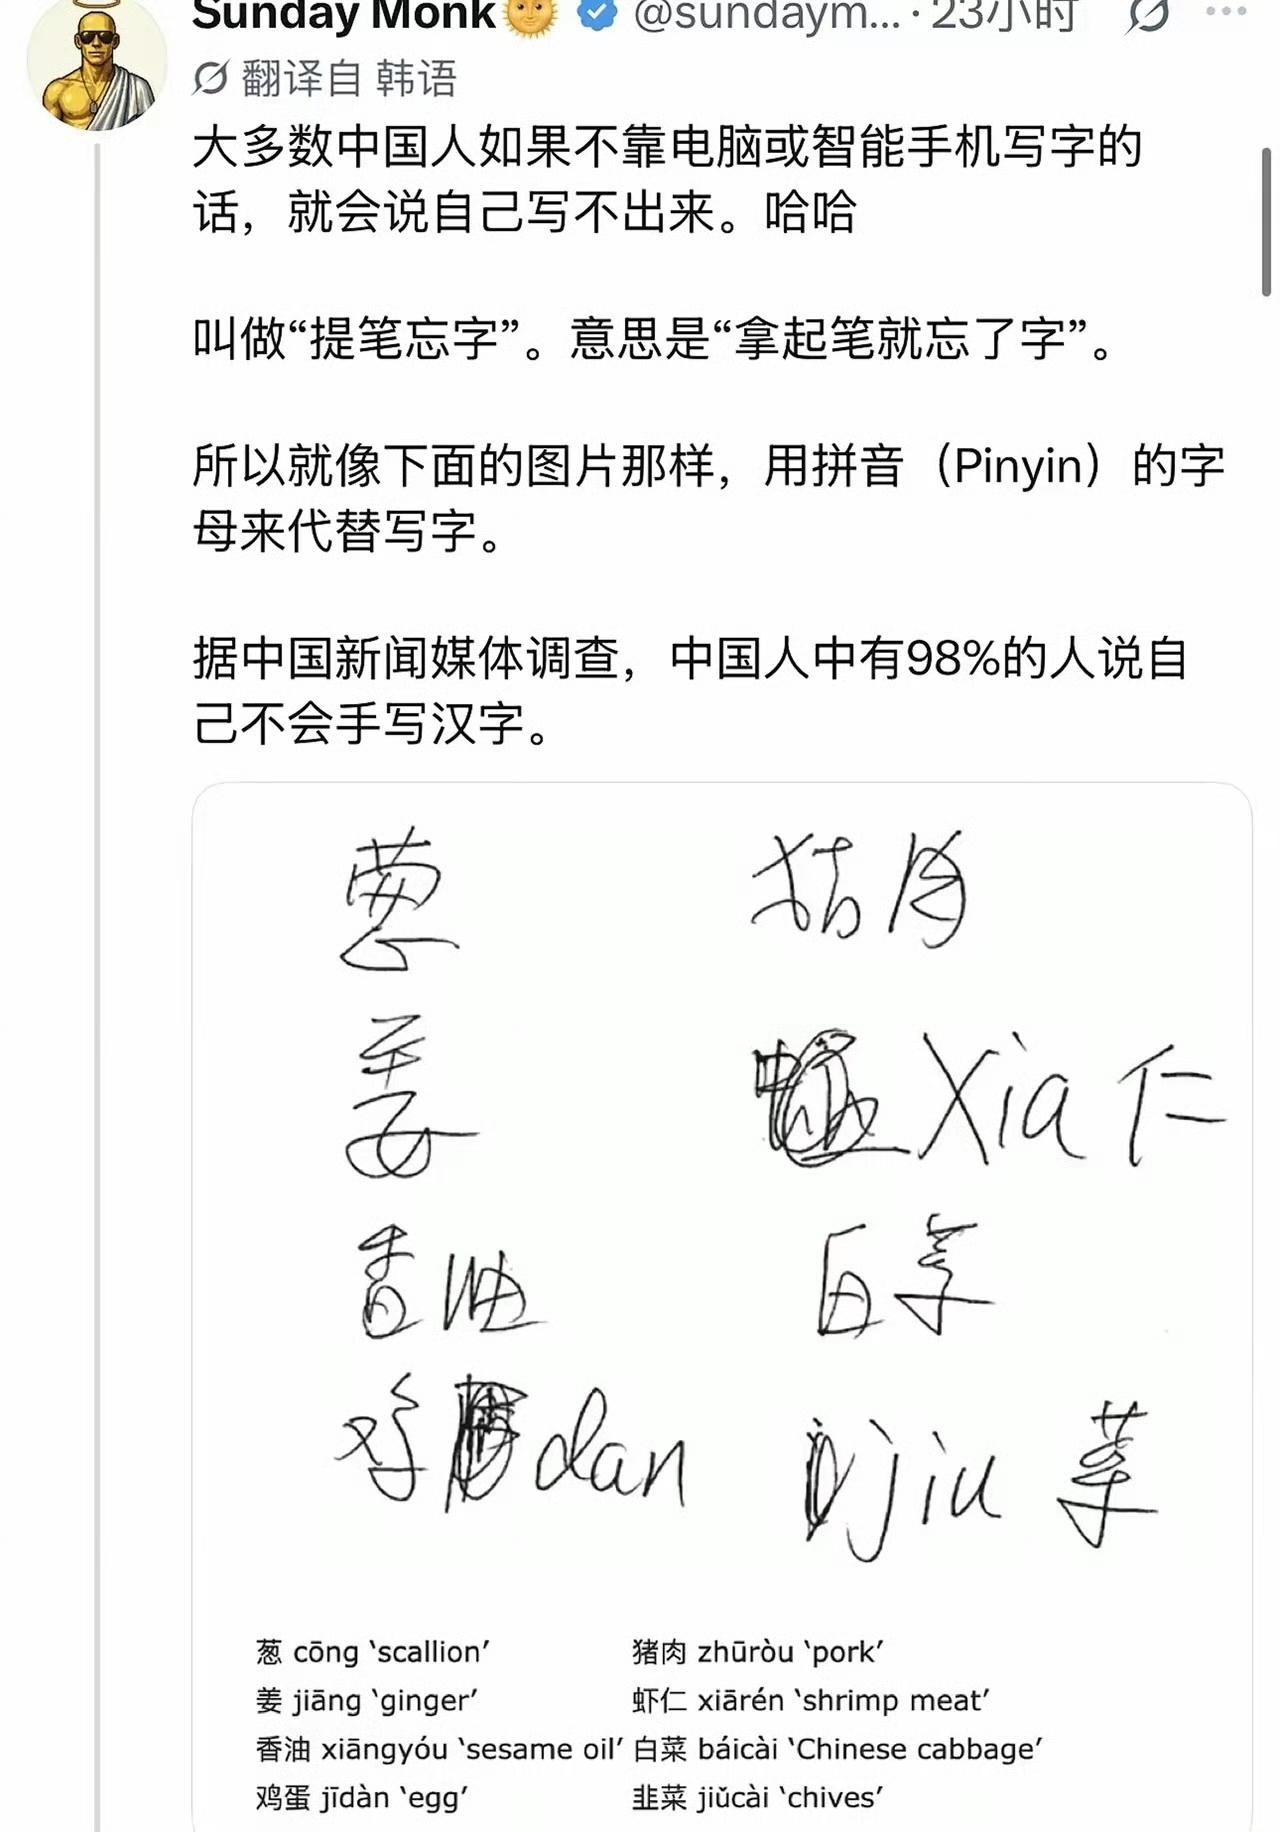 Sunday Monk🌞 @sundaym... · 23小时
翻译自 韩语
大多数中国人如果不靠电脑或智能手机写字的
话，就会说自己写不出来。哈哈
叫做“提笔忘字”。意思是“拿起笔就忘了字”。
所以就像下面的图片那样，用拼音（Pinyin）的字
母来代替写字。
据中国新闻媒体调查，中国人中有98%的人说自
己不会手写汉字。
葱 猪肉
姜 Xia仁
香油 白菜
鸡dan jiu菜
葱 cōng ‘scallion’ 猪肉 zhūròu ‘pork’
姜 jiāng ‘ginger’ 虾仁 xiārén ‘shrimp meat’
香油 xiāngyóu ‘sesame oil’ 白菜 báicài ‘Chinese cabbage’
鸡蛋 jīdàn ‘egg’ 韭菜 jiǔcài ‘chives’